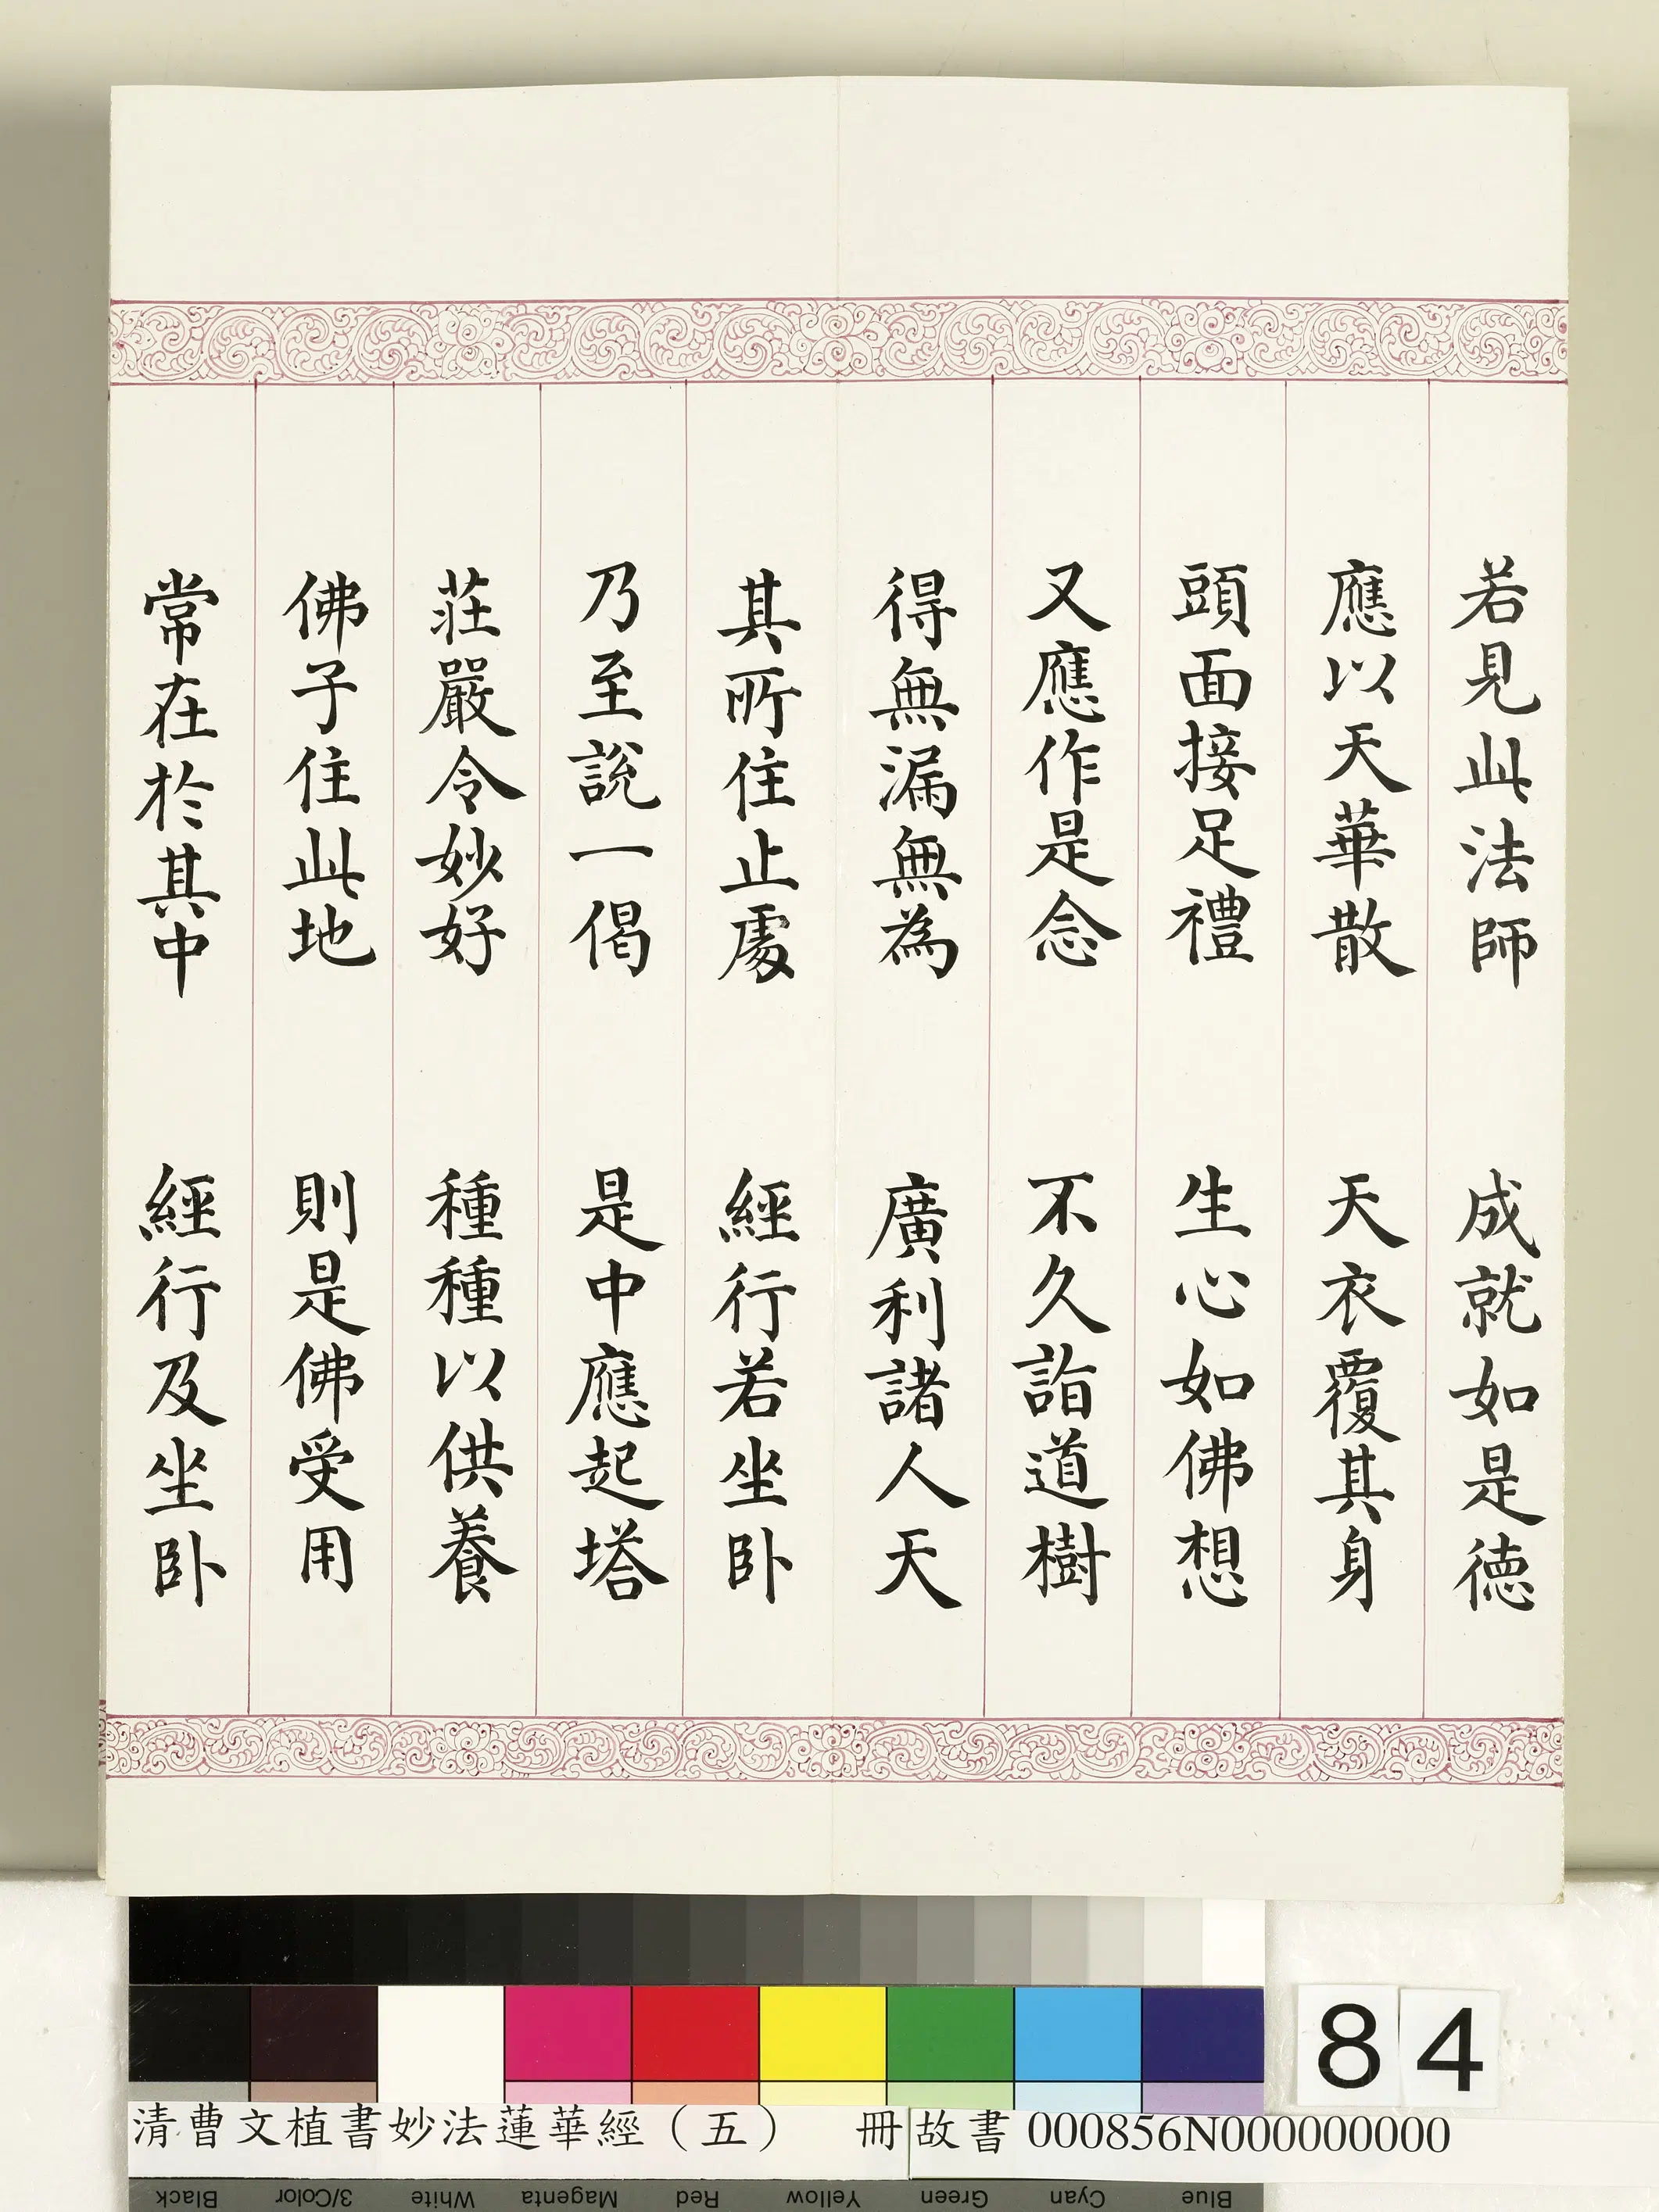 若見此法師 成就如是德
應以天華散 天衣覆其身
頭面接足禮 生心如佛想
又應作是念 不久詣道樹
得無漏無為 廣利諸人天
其所住止處 經行若坐臥
乃至說一偈 是中應起塔
莊嚴令妙好 種種以供養
佛子住此地 則是佛受用
常在於其中 經行及坐臥
84
清曹文植書妙法蓮華經（五） 冊 故書 000856N000000000
Black 3/Color White Magenta Red Yellow Green Cyan Blue